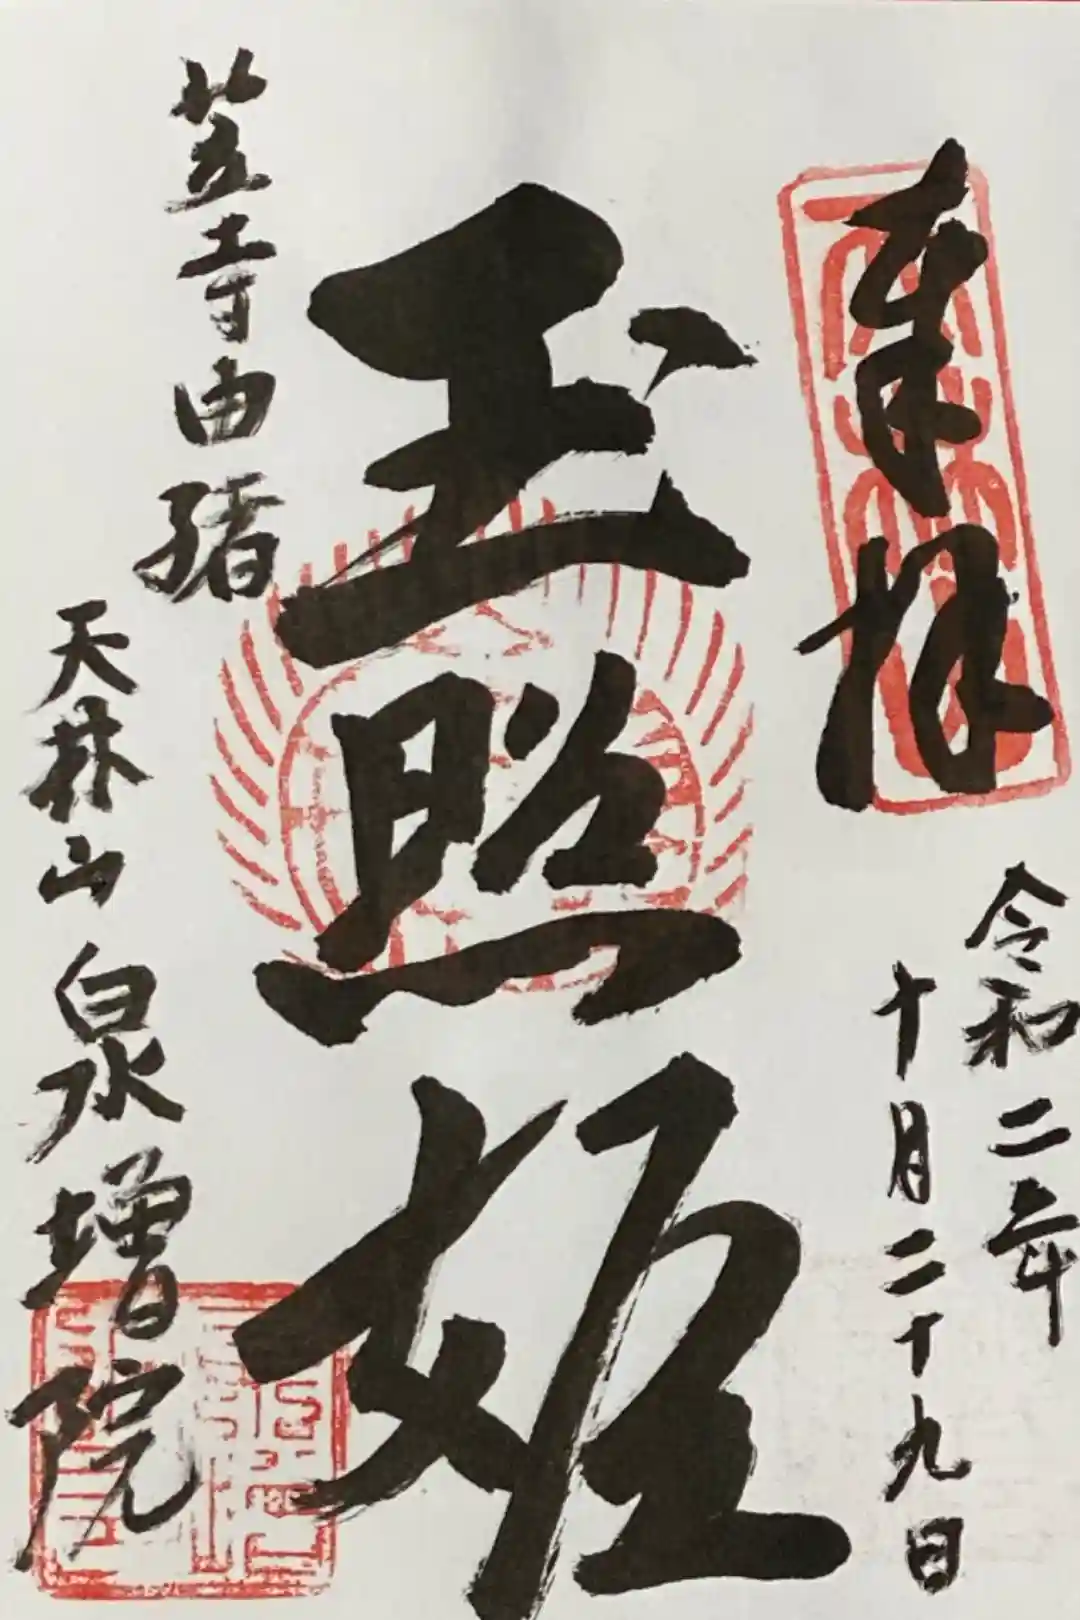 奉拝
令和二年
十月二十九日
玉照姫
笠寺由緒
天林山 泉増院